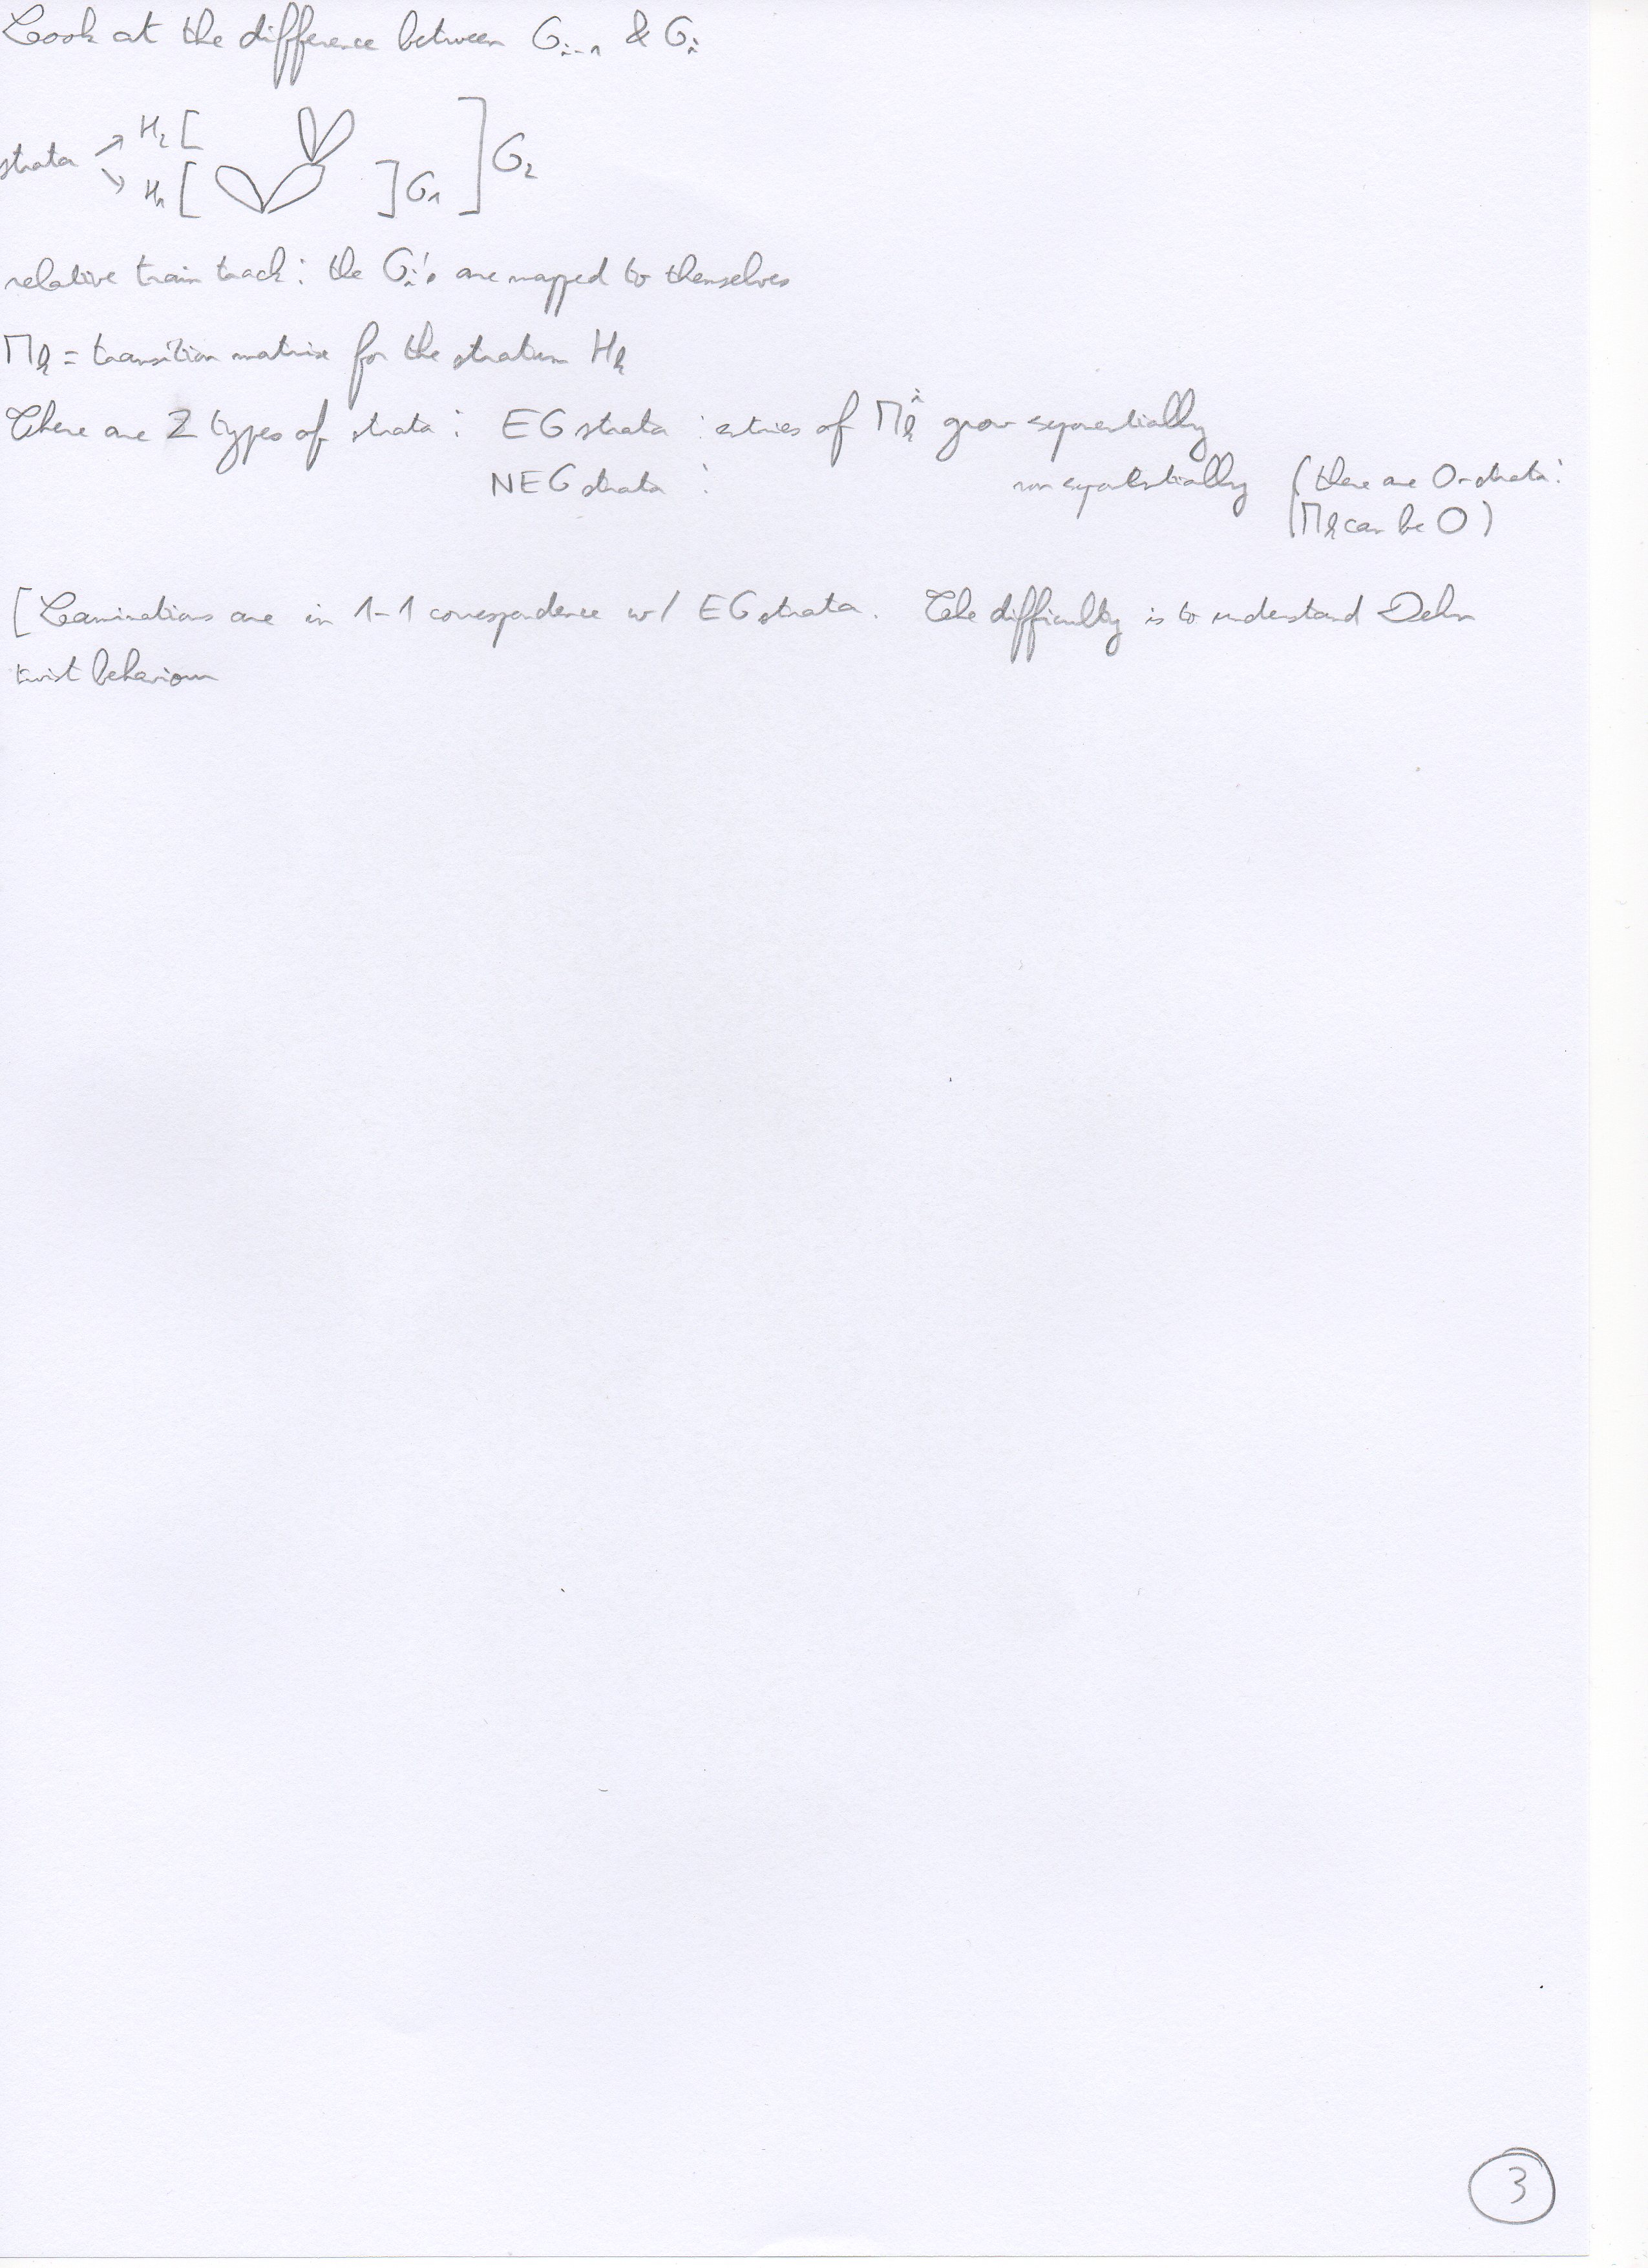 Look at the difference between G_{i-1} & G_i
strata → H_2 [ ] G_2
↘ H_1 [ ] G_1
relative train track : the G_i's are mapped to themselves
M_k = transition matrix for the stratum H_k
There are 2 types of strata : EG strata : entries of M_k^i grow exponentially
NEG strata : non exponentially (there are 0-strata :
M_k can be 0)
[ Laminations are in 1-1 correspondence w/ EG strata. The difficulty is to understand Dehn
twist behaviour
3